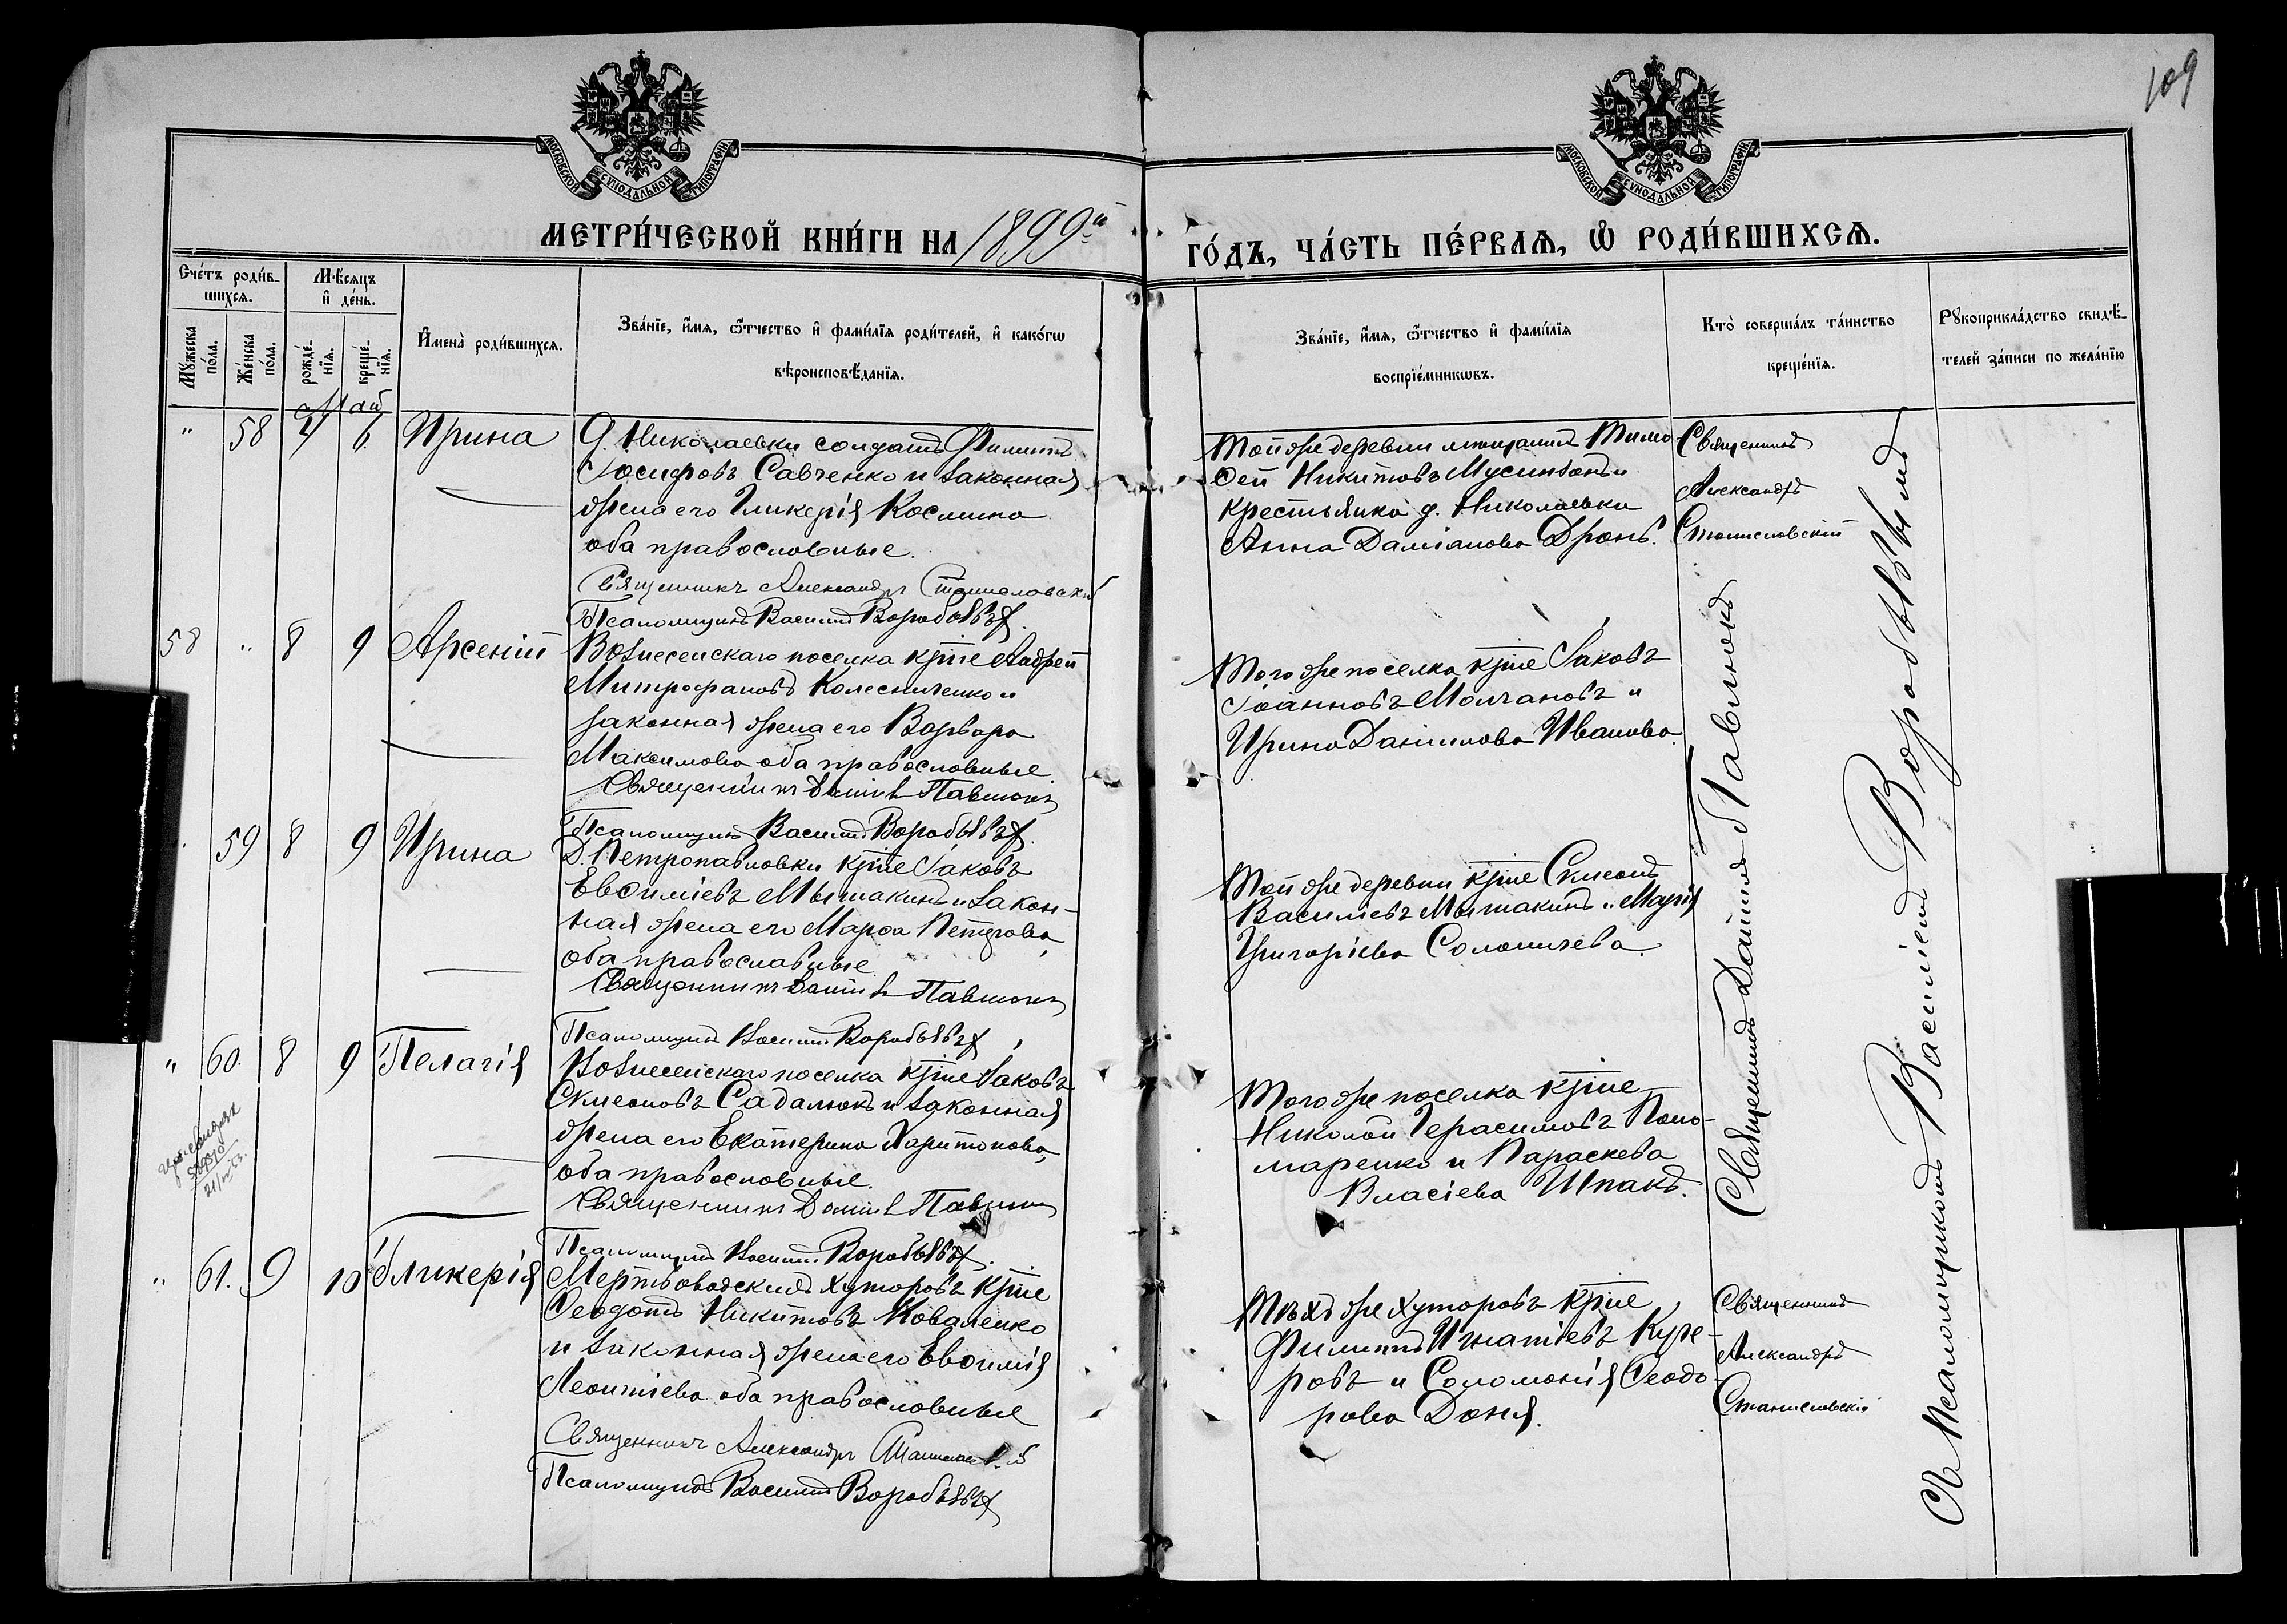 109
МОСКОВСКОЙ СѴНОДАЛЬНОЙ ТИПОГРАФІИ
МОСКОВСКОЙ СѴНОДАЛЬНОЙ ТИПОГРАФІИ
МЕТРИ́ЧЕСКОЙ КНИ́ГИ НА 1899й ГО́ДЪ, ЧА́СТЬ ПЕ́РВАѦ, Ѡ҆ РОДИ́ВШИХСѦ.
Сче́тъ роди́в-
шихсѧ.
Мꙋ́жеска
по́ла.
Же́нска
по́ла.
Мѣ́сѧцъ
и҆ де́нь.
рожде́-
нїѧ.
креще́-
нїѧ.
И҆мена̀ роди́вшихсѧ.
Зва́нїе, и҆́мѧ, ѻ҆́тчество и҆ фами́лїѧ роди́телей, и҆ како́гѡ
вѣроисповѣ́данїѧ.
Зва́нїе, и҆́мѧ, ѻ҆́тчество и҆ фами́лїѧ
воспрїе́мникѡвъ.
Кто̀ соверша́лъ та́инство
креще́нїѧ.
Рꙋкоприкла́дство свидѣ́-
телей за́писи по жела́нїю
Май
" 58 4 6. Ирина
Д. Николаевки солдатъ Филиппъ
Іосифовъ Савченко и законная
жена его Гликерія Космина
оба православные.
Священникъ Александръ Станиславскій
Псаломщикъ Василій Воробьевъ
Той же деревни мещанинъ Тимо
ѳей Никитовъ Мусинъ и
крестьянка д. Николаевки
Анна Даміанова Дронь.
Священникъ
Александръ
Станиславскій
58 " 8 9 Арсеній
Вознесенскаго поселка кр̅не Андрей
Митрофановъ Колесниченко и
законная жена его Варвара
Максимова оба православные
Священникъ Даніилъ Павлюкъ
Псаломщикъ Василій Воробьевъ
Того же поселка кр̅не Іаковъ
Іоанновъ Молчановъ и
Ирина Данилова Иванова.
59 8 9 Ирина
Д. Петропавловки кр̅не Іаковъ
Евѳиміевъ Мышакинъ и закон-
ная жена его Марѳа Петрова,
оба православные
Священникъ Даніилъ Павлюкъ
Псаломщикъ Василій Воробьевъ
Той же деревни кр̅не Симеонъ
Василіевъ Мышакинъ и Марія
Григоріева Соломичева.
" 60. 8 9 Пелагія
Вознесенскаго поселка кр̅не Іаковъ
Симеоновъ Садалюкъ и законная
жена его Екатерина Харитонова,
оба православные.
Священникъ Даніилъ Павлюкъ
Псаломщикъ Василій Воробьевъ
Того же поселка кр̅не
Николай Герасимовъ Поно-
маренко и Параскева
Власіева Шпакъ.
" 61. 9 10 Гликерія
Мертвоводскихъ хуторовъ кр̅не
Ѳеодотъ Никитовъ Коваленко
и законная жена его Евѳимія
Леонтіева оба православные
Священникъ Александръ Станиславскій
Псаломщикъ Василій Воробьевъ
Тѣхъ же хуторовъ кр̅не
Филиппъ Игнатіевъ Куче-
ровъ и Соломонія Ѳеодо-
рова Доня.
Священникъ
Александръ
Станиславскій
Священникъ Даніилъ Павлюкъ
Съ Псаломщикомъ Василіемъ Воробьевымъ